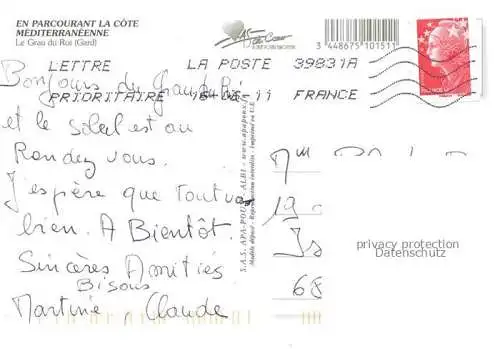 EN PARCOURANT LA CÔTE
MÉDITERRANÉENNE
Le Grau du Roi (Gard)
As de Cœur
3 448675 101511
LETTRE LA POSTE 39831A
PRIORITAIRE FRANCE
Bonjours du Grau du Roi
et le soleil est au
Rendez vous.
J'espère que tout va
bien. A Bientôt.
Sincères Amitiés
Bisous
Martine, Claude
S.A.S. APA-POUX - ALBI - www.apapoux.fr
Modèle déposé - Reproduction interdite - Imprimé en U.E.
Mme
19
68
privacy protection
Datenschutz